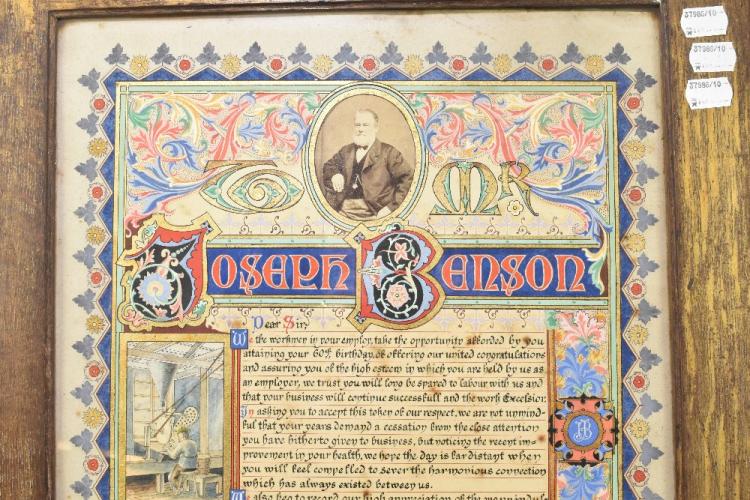 To Mr
Joseph Benson
Dear Sir,
We the workmen in your employ, take the opportunity afforded by you
attaining your 60th birthday, of offering our united congratulations
and assuring you of the high esteem in which you are held by us as
an employer, we trust you will long be spared to labour with us and
that your business will continue successfull and the work Excelsior.
In asking you to accept this token of our respect, we are not unmind-
ful that your years demand a cessation from the close attention
you have hitherto given to business, but noticing the recent im-
provement in your health, we hope the day is far distant when
you will feel compelled to sever the harmonious connection
which has always existed between us.
We also beg to record our high appreciation of the
37986/10
37986/10
37986/10